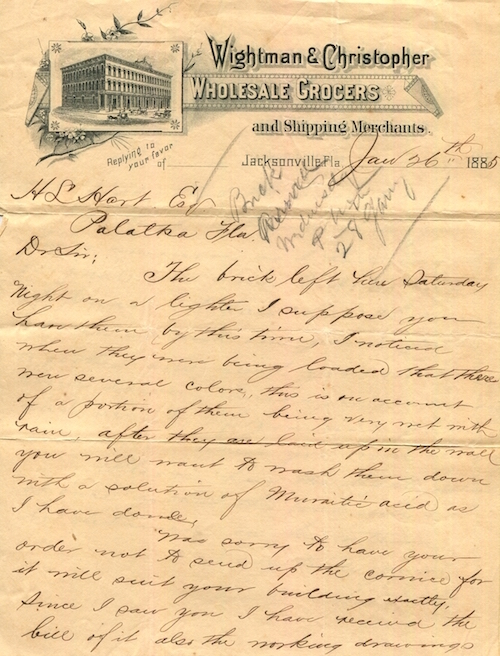 Wightman & Christopher
WHOLESALE GROCERS
and Shipping Merchants.
Replying to
your favor
of
Jacksonville, Fla Jan 26th 1885
H L Hart Esq
Palatka Fla.
Brick
Received
28 Jany
Dr Sir;
The brick left here Saturday
night on a lighter I suppose you
have them by this time, I noticed
when they were being loaded that there
were several colors, this is on account
of a portion of them being very wet with
rain, after they are laid up in the wall
you will want to wash them down
with a solution of Muriatic acid as
I have done.
Was sorry to have your
order not to send up the cornice for
it will suit your building exactly.
Since I saw you I have received the
bill of it also the working drawings